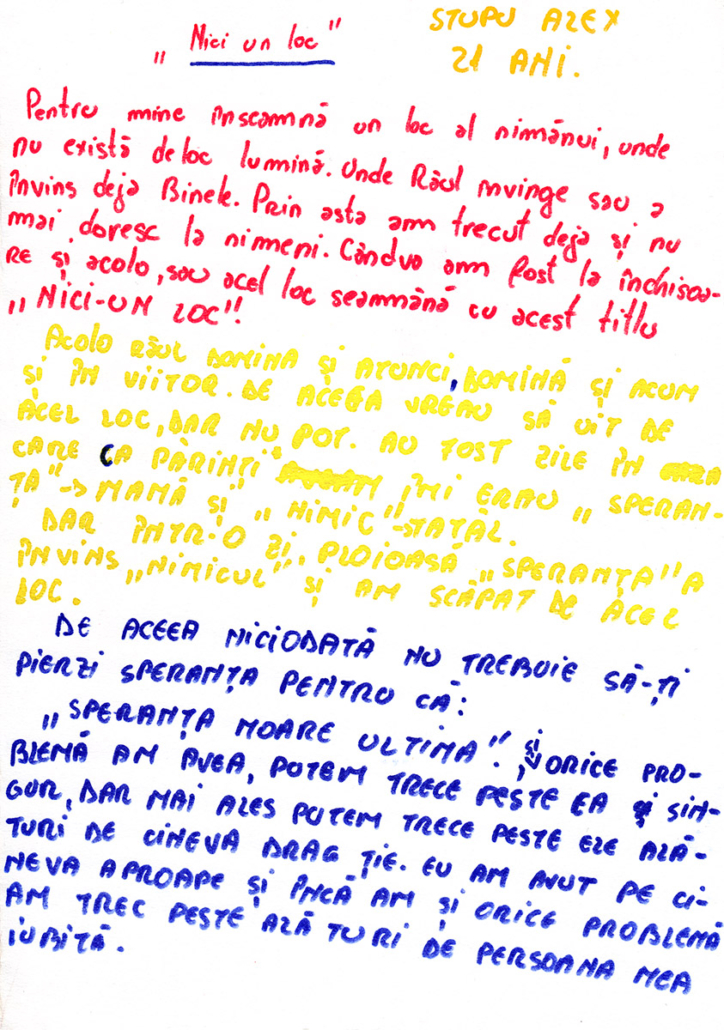 „Nici un loc"
STUPU ALEX
21 ANI.
Pentru mine înseamnă un loc al nimănui, unde
nu există deloc lumină. Unde Răul învinge sau a
învins deja Binele. Prin asta am trecut deja și nu
mai doresc la nimeni. Cândva am fost la închisoa-
RE și acolo, sau acel loc seamănă cu acest titlu
„NICI-UN LOC"!
Acolo RĂUL DOMINĂ ȘI ATUNCI, DOMINĂ ȘI ACUM
ȘI ÎN VIITOR. DE ACEEA VREAU SĂ UIT DE
ACEL LOC, DAR NU POT. AU FOST ZILE ÎN
CARE CA PĂRINȚI ÎMI ERAU „SPERAN-
ȚA" -> MAMĂ ȘI „NIMIC" - TATĂL.
DAR ÎNTR-O ZI, PLOIOASĂ „SPERANȚA" A
ÎNVINS „NIMICUL" ȘI AM SCĂPAT DE ACEL
LOC.
DE ACEEA NICIODATĂ NU TREBUIE SĂ-ȚI
PIERZI SPERANȚA PENTRU CĂ:
„SPERANȚA MOARE ULTIMA". ȘI ORICE PRO-
BLEMĂ AM AVEA, POTEM TRECE PESTE EA ȘI SIN-
GUR, DAR MAI ALES PUTEM TRECE PESTE ELE ALĂ-
TURI DE CINEVA DRAG ȚIE. EU AM AVUT PE CI-
NEVA APROAPE ȘI ÎNCĂ AM ȘI ORICE PROBLEMĂ
AM TREC PESTE ALĂTURI DE PERSOANA MEA
IUBITĂ.